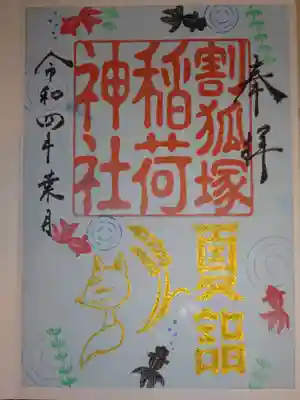 奉拝
割狐塚
稲荷
神社
令和四年葉月
夏詣